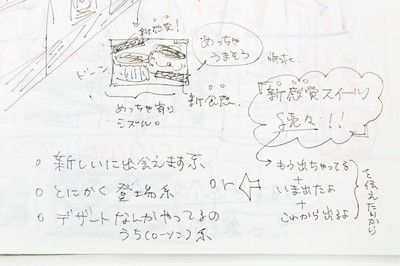 新感覚!
めっちゃ
うまそう
ドーン
めっちゃ寄り
シズル。
新食感
「新感覚スイーツ
続々!!」
もう出ちゃってる
+
いま出たよ
+
これから出るよ
を伝えたいから
○ 新しいに出会えます系
○ とにかく登場系
or
○ デザートなんかやってるの
うち(ローソン)系